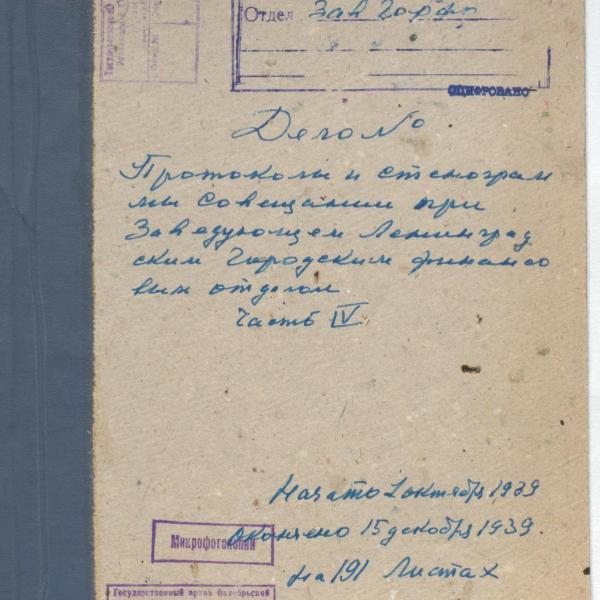 Отдел Зав Горфо
ОЦИФРОВАНО
Дело №
Протоколы и стенограм
мы совещании при
Заведующем Ленинград
ским Городским финансо
вым отделом
Часть IV
Начато 1 октября 1939
окончено 15 декабря 1939.
Микрофотокопии
на 191 Листах
Государственный архив Октябрьской